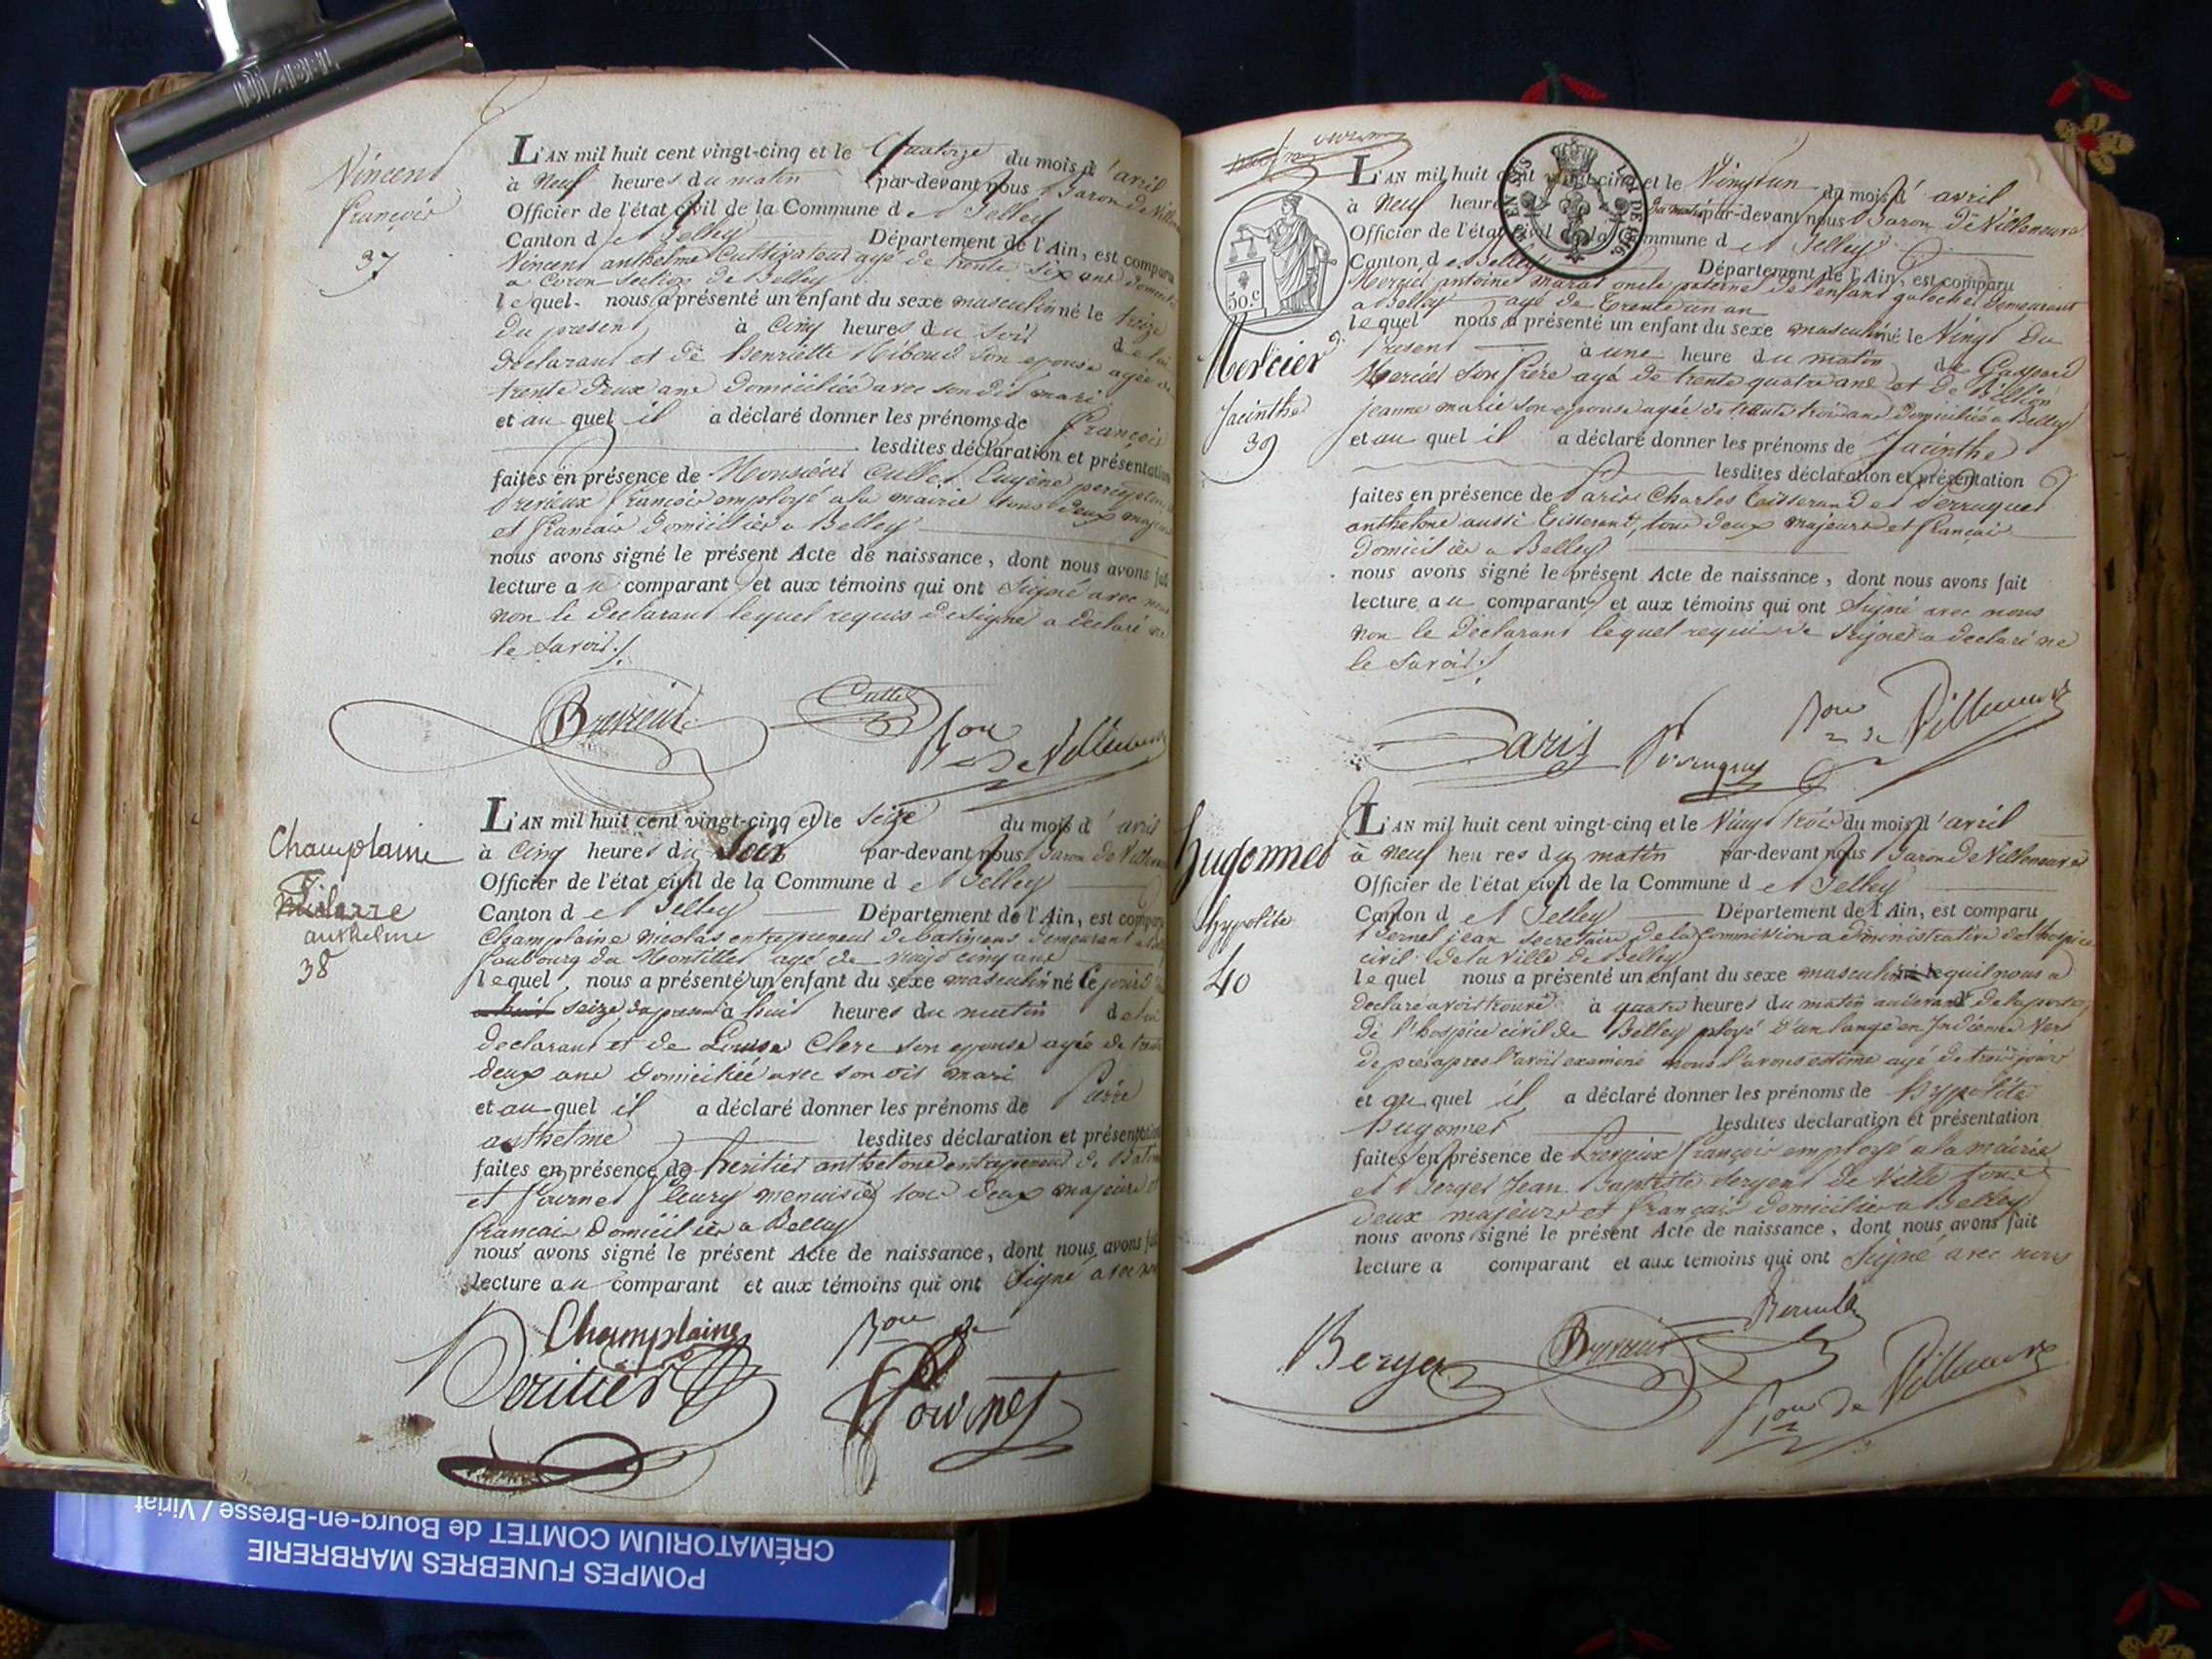 DIABEL
Vincent
François
37
L'AN mil huit cent vingt-cinq et le Quatorze du mois d'avril
à Neuf heures du matin par-devant nous Baron de Villeneuve
Officier de l'état civil de la Commune de Belley
Canton de Belley Département de l'Ain, est comparu
Vincent anthelme Cultivateur agé de trente six ans domicilié
a Coron section de Belley
lequel nous a présenté un enfant du sexe masculin né le treize
du present à Cinq heures du soir de lui
declarant et de henriette Riboud son epouse agée de
trente deux ans domiciliée avec son dit mari
et au quel il a déclaré donner les prénoms de François
lesdites déclaration et présentation
faites en présence de Monsieur Cullet Eugène percepteur
Brevieux François employé a la mairie tous deux majeurs
et français domiciliés a Belley
nous avons signé le présent Acte de naissance, dont nous avons fait
lecture au comparant et aux témoins qui ont signé avec nous
non le declarant lequel requis de signer a declaré ne
le savoir ./.
Brevieux Cullet
Bon de Villeneuve
Champlaine
Pierre
anthelme
38
L'AN mil huit cent vingt-cinq et le seize du mois d'avril
à Cinq heures du Soir par-devant nous Baron de Villeneuve
Officier de l'état civil de la Commune de Belley
Canton de Belley Département de l'Ain, est comparu
Champlaine Nicolas entrepreneur de batimens demeurant a Belley
faubourg du Montillet agé de vingt cinq ans
lequel nous a présenté un enfant du sexe masculin né le jourd
seize du present à huit heures du matin de lui
declarant et de Louise Clerc son epouse agée de trente
deux ans domiciliée avec son dit mari
et au quel il a déclaré donner les prénoms de Pierre
anthelme lesdites déclaration et présentation
faites en présence de heritier anthelme entrepreneur de Batimens
et Fournet fleury menuisier tous deux majeurs et
francais domiciliés a Belley
nous avons signé le présent Acte de naissance, dont nous avons fait
lecture au comparant et aux témoins qui ont signé avec nous
Champlaine Bon de
Heritier Fournet
Mercier
Jacinthe
39
30.c
L'AN mil huit cent vingt-cinq et le Vingt un du mois d'avril
à Neuf heures du matin par-devant nous Baron de Villeneuve
Officier de l'état civil de la Commune de Belley
Canton de Belley Département de l'Ain, est comparu
Mercier antoine marat oncle paternel de l'enfant galocher demeurant
a Belley agé de trente un an
lequel nous a présenté un enfant du sexe masculin né le Vingt du
present à une heure du matin de Gaspard
Mercier son frère agé de trente quatre ans et de Billion
jeanne marie son epouse agée de trente trois ans domiciliés a Belley
et au quel il a déclaré donner les prénoms de Jacinthe
lesdites déclaration et présentation
faites en présence de Paris Charles Tisserand et Perruquet
anthelme aussi Tisserand, tous deux majeurs et français
domiciliés a Belley
nous avons signé le présent Acte de naissance, dont nous avons fait
lecture au comparant et aux témoins qui ont signé avec nous
non le Declarant lequel requis de signer a declaré ne
le savoir ./.
Paris Perruquet Bon de Villeneuve
hugonnet
hypolite
40
L'AN mil huit cent vingt-cinq et le Vingt trois du mois d'avril
à neuf heures du matin par-devant nous Baron de Villeneuve
Officier de l'état civil de la Commune de Belley
Canton de Belley Département de l'Ain, est comparu
Bernel jean secretaire de la Commission administrative de l'hospice
civil de la Ville de Belley
lequel nous a présenté un enfant du sexe masculin lequil nous a
declaré avoir trouvé à quatre heures du matin audevant de la porte
de l'hospice civil de Belley ployé d'un lange en Indienne Vert
de pré apres l'avoir examiné nous l'avons estimé agé de trois jours
et au quel il a déclaré donner les prénoms de hyppolite
hugonnet lesdites déclaration et présentation
faites en présence de Brevieux françois employé a la mairie
et Berger Jean Baptiste Sergent de Ville tous
deux majeurs et français domiciliés a Belley
nous avons signé le présent Acte de naissance, dont nous avons fait
lecture a comparant et aux témoins qui ont signé avec nous
Berger Brevieux
Bon de Villeneuve
POMPES FUNEBRES MARBRERIE
CRÉMATORIUM COMTET de Bourg-en-Bresse / Viriat